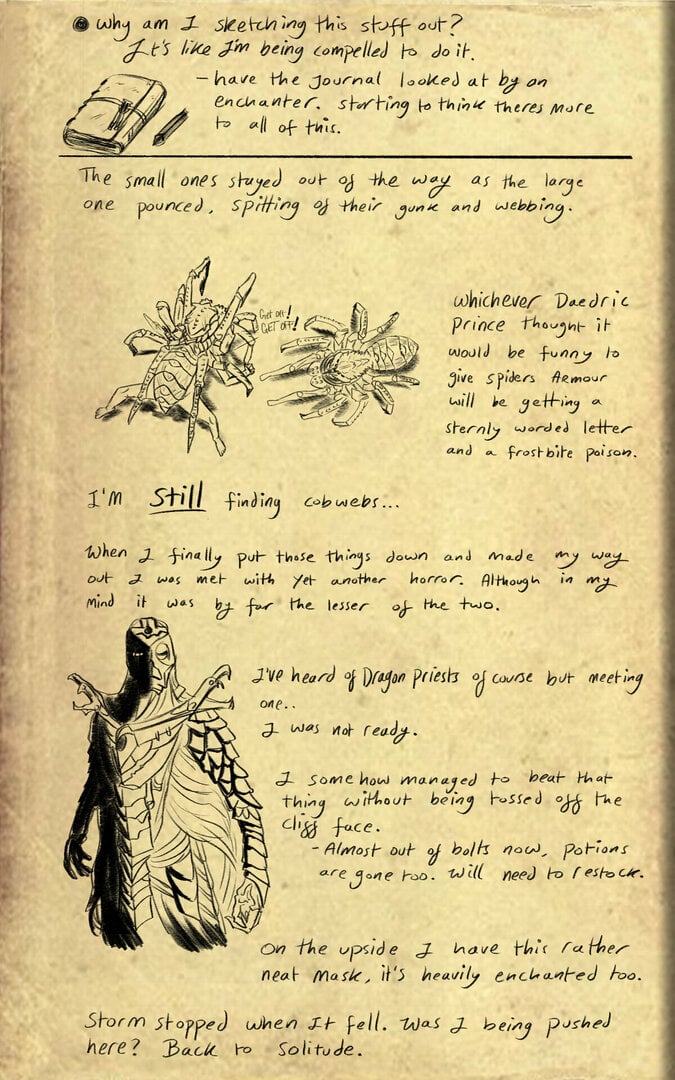 Why am I sketching this stuff out?
It's like I'm being compelled to do it.
- have the Journal looked at by an
enchanter. starting to think theres more
to all of this.
The small ones stayed out of the way as the large
one pounced, spitting of their gunk and webbing.
Get off!
GET OFF!
Whichever Daedric
Prince thought it
would be funny to
give spiders Armour
will be getting a
sternly worded letter
and a frostbite poison.
I'm Still finding cobwebs...
When I finally put those things down and made my way
out I was met with yet another horror. Although in my
mind it was by far the lesser of the two.
I've heard of Dragon Priests of course but meeting
one..
I was not ready.
I somehow managed to beat that
thing without being tossed off the
cliff face.
- Almost out of bolts now, potions
are gone too. Will need to restock.
On the upside I have this rather
neat mask, it's heavily enchanted too.
Storm stopped when It fell. Was I being pushed
here? Back to Solitude.